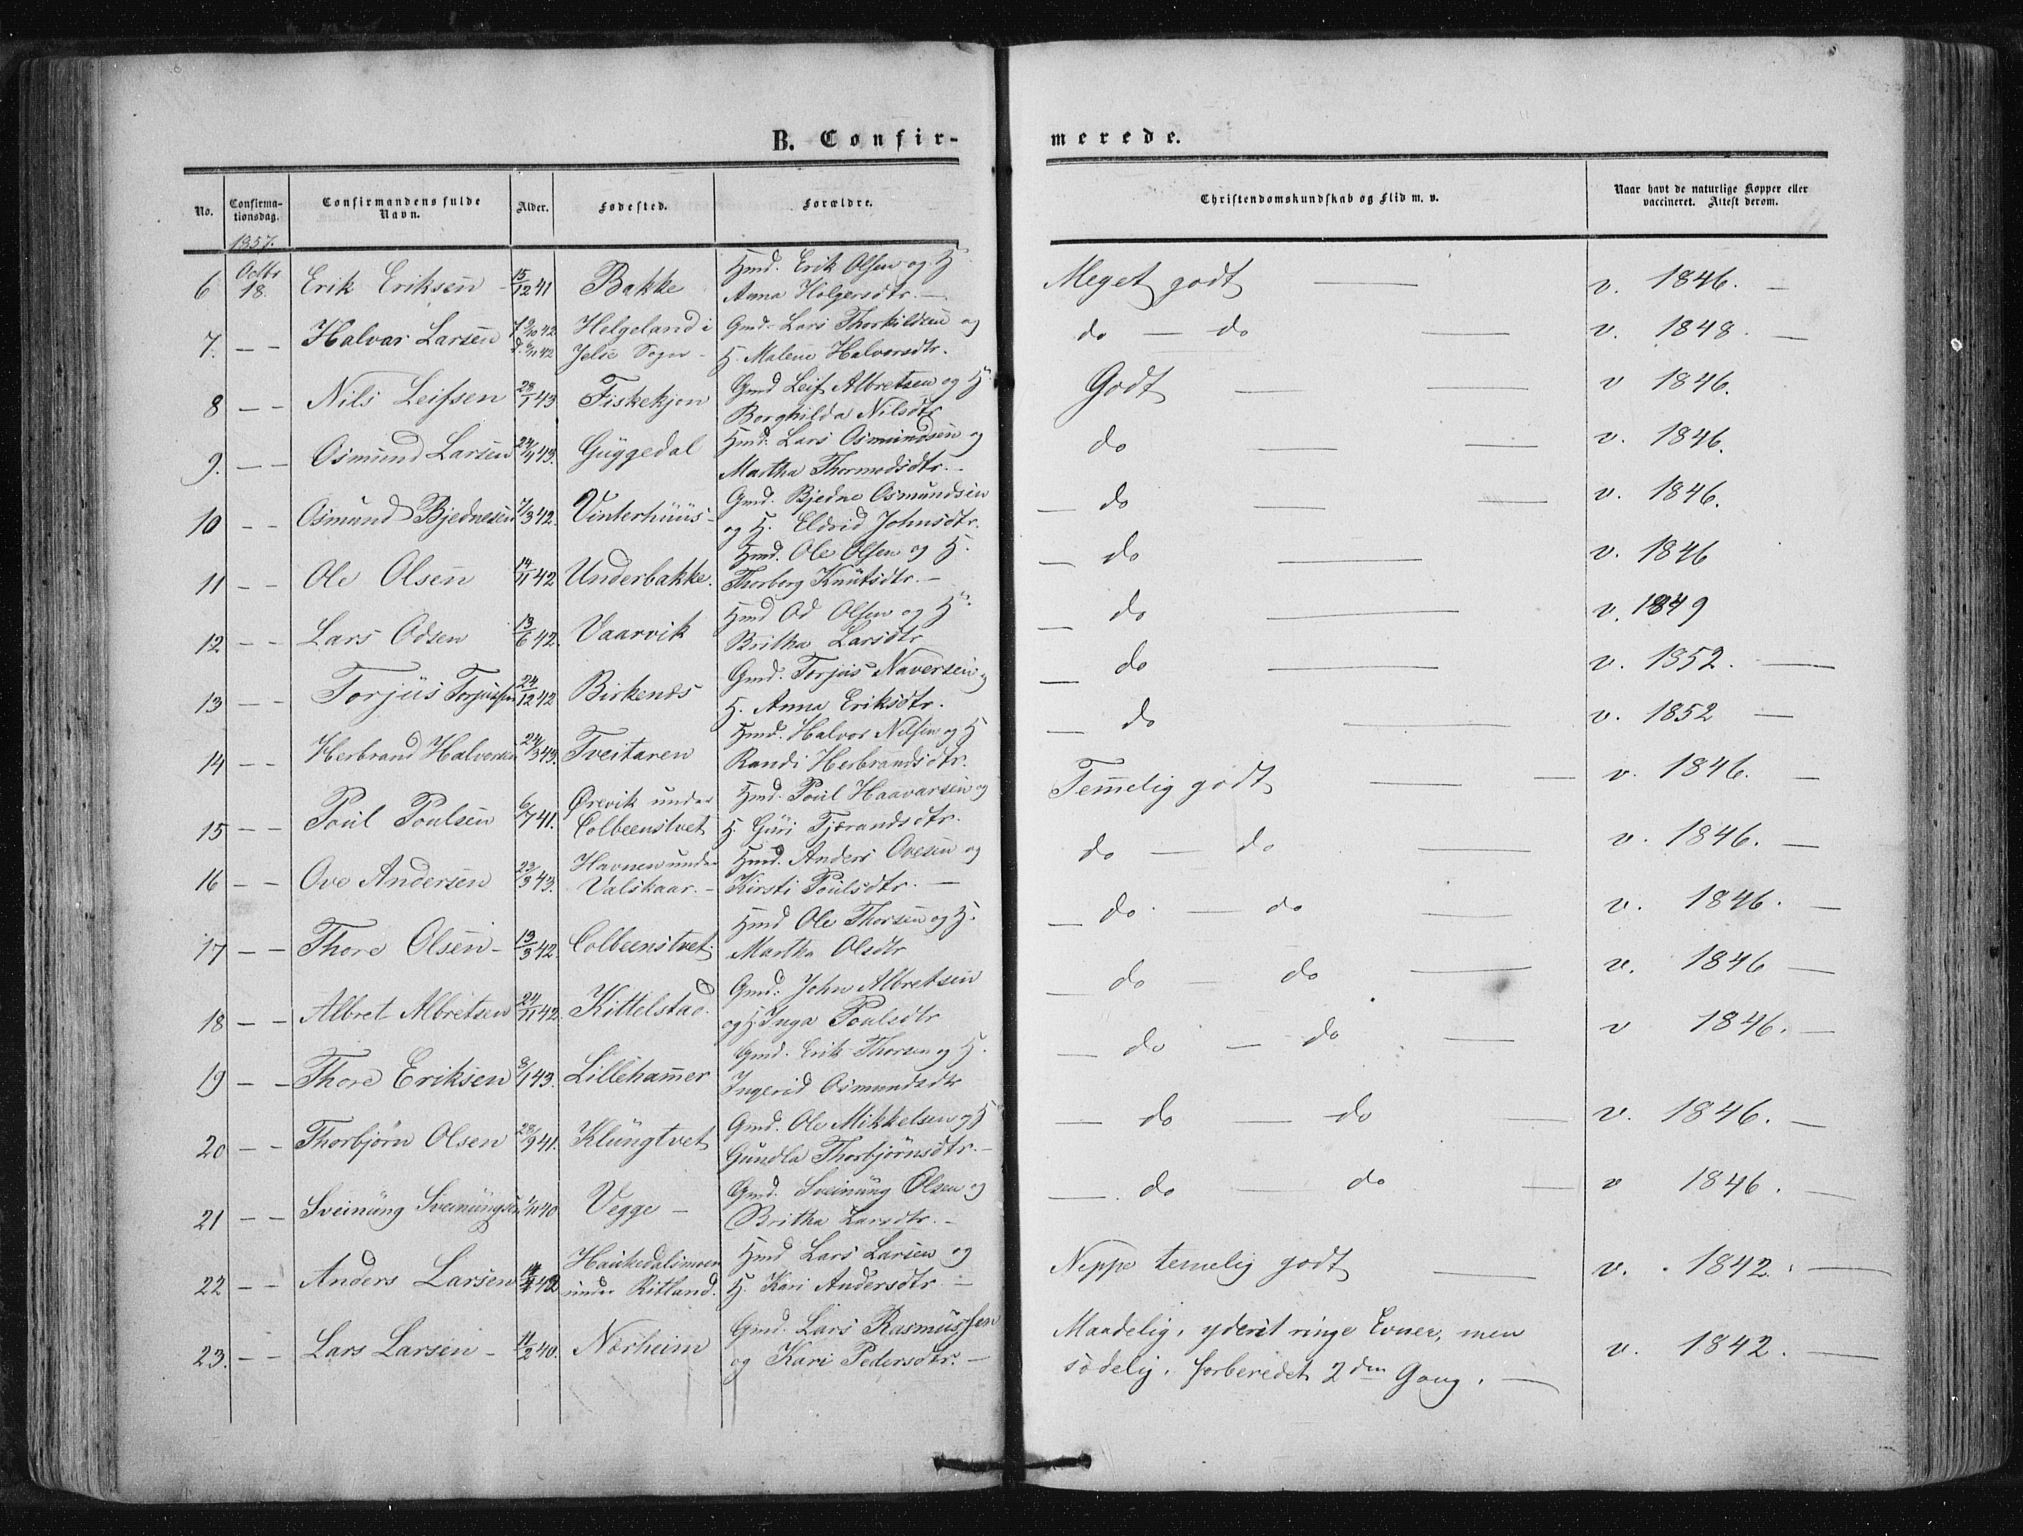 B. Confir-
merede.
No.
Confirma-
tionsdag.
Confirmandens fulde
Navn.
Alder.
Fødested.
Forældre.
Christendomskundskab og Flid m. v.
Naar havt de naturlige Kopper eller
vaccineret. Attest derom.
1857.
6 Octbr 18. Erik Eriksen - 15/12 41 Bakke Hmd. Erik Olsen og H.
Anna Holgersdtr. - Meget godt v. 1846. -
7. - - Halvar Larsen 42 Helgeland i Gmd. Lars Thorkildsen og
42 Jelse Sogn - H. Malene Halvorsdtr. do - do v. 1848. -
8 - - Nils Leifsen 28/1 43 Fiskekjøn Gmd Leif Albretsen og H.
Borghilda Nilsdtr Godt v 1846.
9. - - Osmund Larsen 24/4 43. Guggedal Hmd. Lars Osmundsen og
Martha Thormodsdtr. - do v. 1846.
10 - - Osmund Bjednesen 7/3 42. Vinterhuus - Gmd. Bjedne Osmundsen
og H. Eldrid Johnsdtr. - do v. 1846.
11 - - Ole Olsen 14/11 42 Underbakke. Hmd. Ole Olsen og H.
Thorborg Knutsdtr. - - do v. 1846
12 - - Lars Odsen 13/6 42. Vaarvik Hmd Od Olsen og H.
Britha Larsdtr - do v. 1849
13 - - Torjus Torjussen 24/12 42 Birkenæs Gmd. Torjus Naversen og
H. Anna Eriksdtr. - do v. 1852. -
14 - - Herbrand Halvorsen 24/3 43. Tveitaren Hmd. Halvor Nilsen og H
Randi Herbrandsdtr. - do v. 1852 -
15 - - Poul Poulsen 6/7 41. Ørevik under Hmd. Poul Haavarsen og
Colbeenstvet H. Guri Tjærandsdtr. Temmelig godt v. 1846. -
16 - - Ove Andersen 23/3 43. Havnen under Hmd. Anders Ovesen og
Valskaar. - Kirsti Poulsdtr. - do - do v. 1846. -
17 - - Thore Olsen - 13/3 42. Colbeenstvet. Hmd Ole Thorsen og H.
Martha Olsdtr - do. - do v. 1846. -
18 - - Albret Albretsen 24/11 42. Kittelstad. Gmd. John Albretsen
og H. Inga Poulsdtr - do - do v. 1846 -
19 - - Thore Eriksen 8/1 43. Lillehammer Gmd. Erik Thorsen og H.
Ingerid Osmundsdtr - do - do v 1846. -
20 - - Thorbjørn Olsen 28/9 41. Klungtvet Gmd. Ole Mikkelsen og H
Gundla Thorbjørnsdtr. - - do - do v. 1846. -
21 - - Sveinung Sveinungsen 1/11 40 Vegge - Gmd. Sveinung Olsen og
Britha Larsdtr. - - do - do v 1846. -
22 - - Anders Larsen 42 Haukedalsmoen Hmd Lars Larsen og
under Ritland. H. Kari Andersdtr. - Neppe temmelig godt v. 1842. -
23. - - Lars Larsen - 11/2 40. Nørheim Gmd. Lars Rasmussen
og Kari Pedersdtr. - Maadelig, yderst ringe Evner, men
sædelig, forberedet 2den Gang. - v. 1842. -